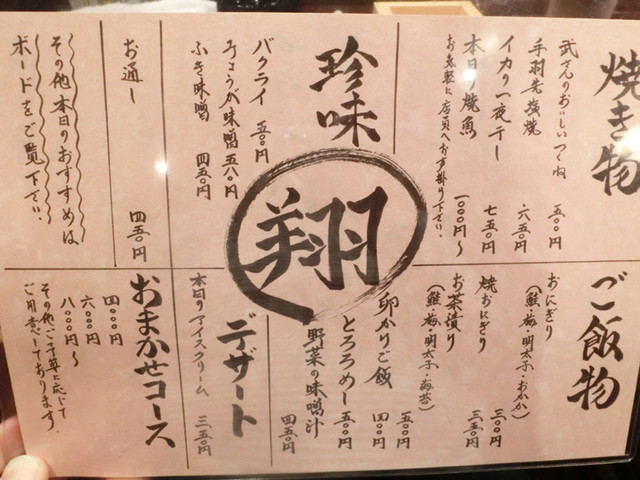 焼き物
武さんのおいしいつくね 五〇〇円
手羽先塩焼 六五〇円
イカの一夜干し 七五〇円
本日の焼魚 一〇〇〇円〜
お気軽に店員へお声掛け下さい。
珍味
バクライ 五〇〇円
みょうが味噌 五八〇円
ふき味噌 四五〇円
お通し 四五〇円
その他本日のおすすめは
ボードをご覧下さい。
翔
ご飯物
おにぎり 三〇〇円
(鮭・梅・明太子・おかか)
焼おにぎり 三五〇円
お茶漬け 五〇〇円
(鮭・梅・明太子・海苔)
卵かけご飯 四〇〇円
とろろめし 五〇〇円
野菜の味噌汁 四五〇円
デザート
本日のアイスクリーム 三五〇円
おまかせコース
四〇〇〇円
六〇〇〇円
八〇〇〇円〜
その他ご予算に応じて
ご用意しております。